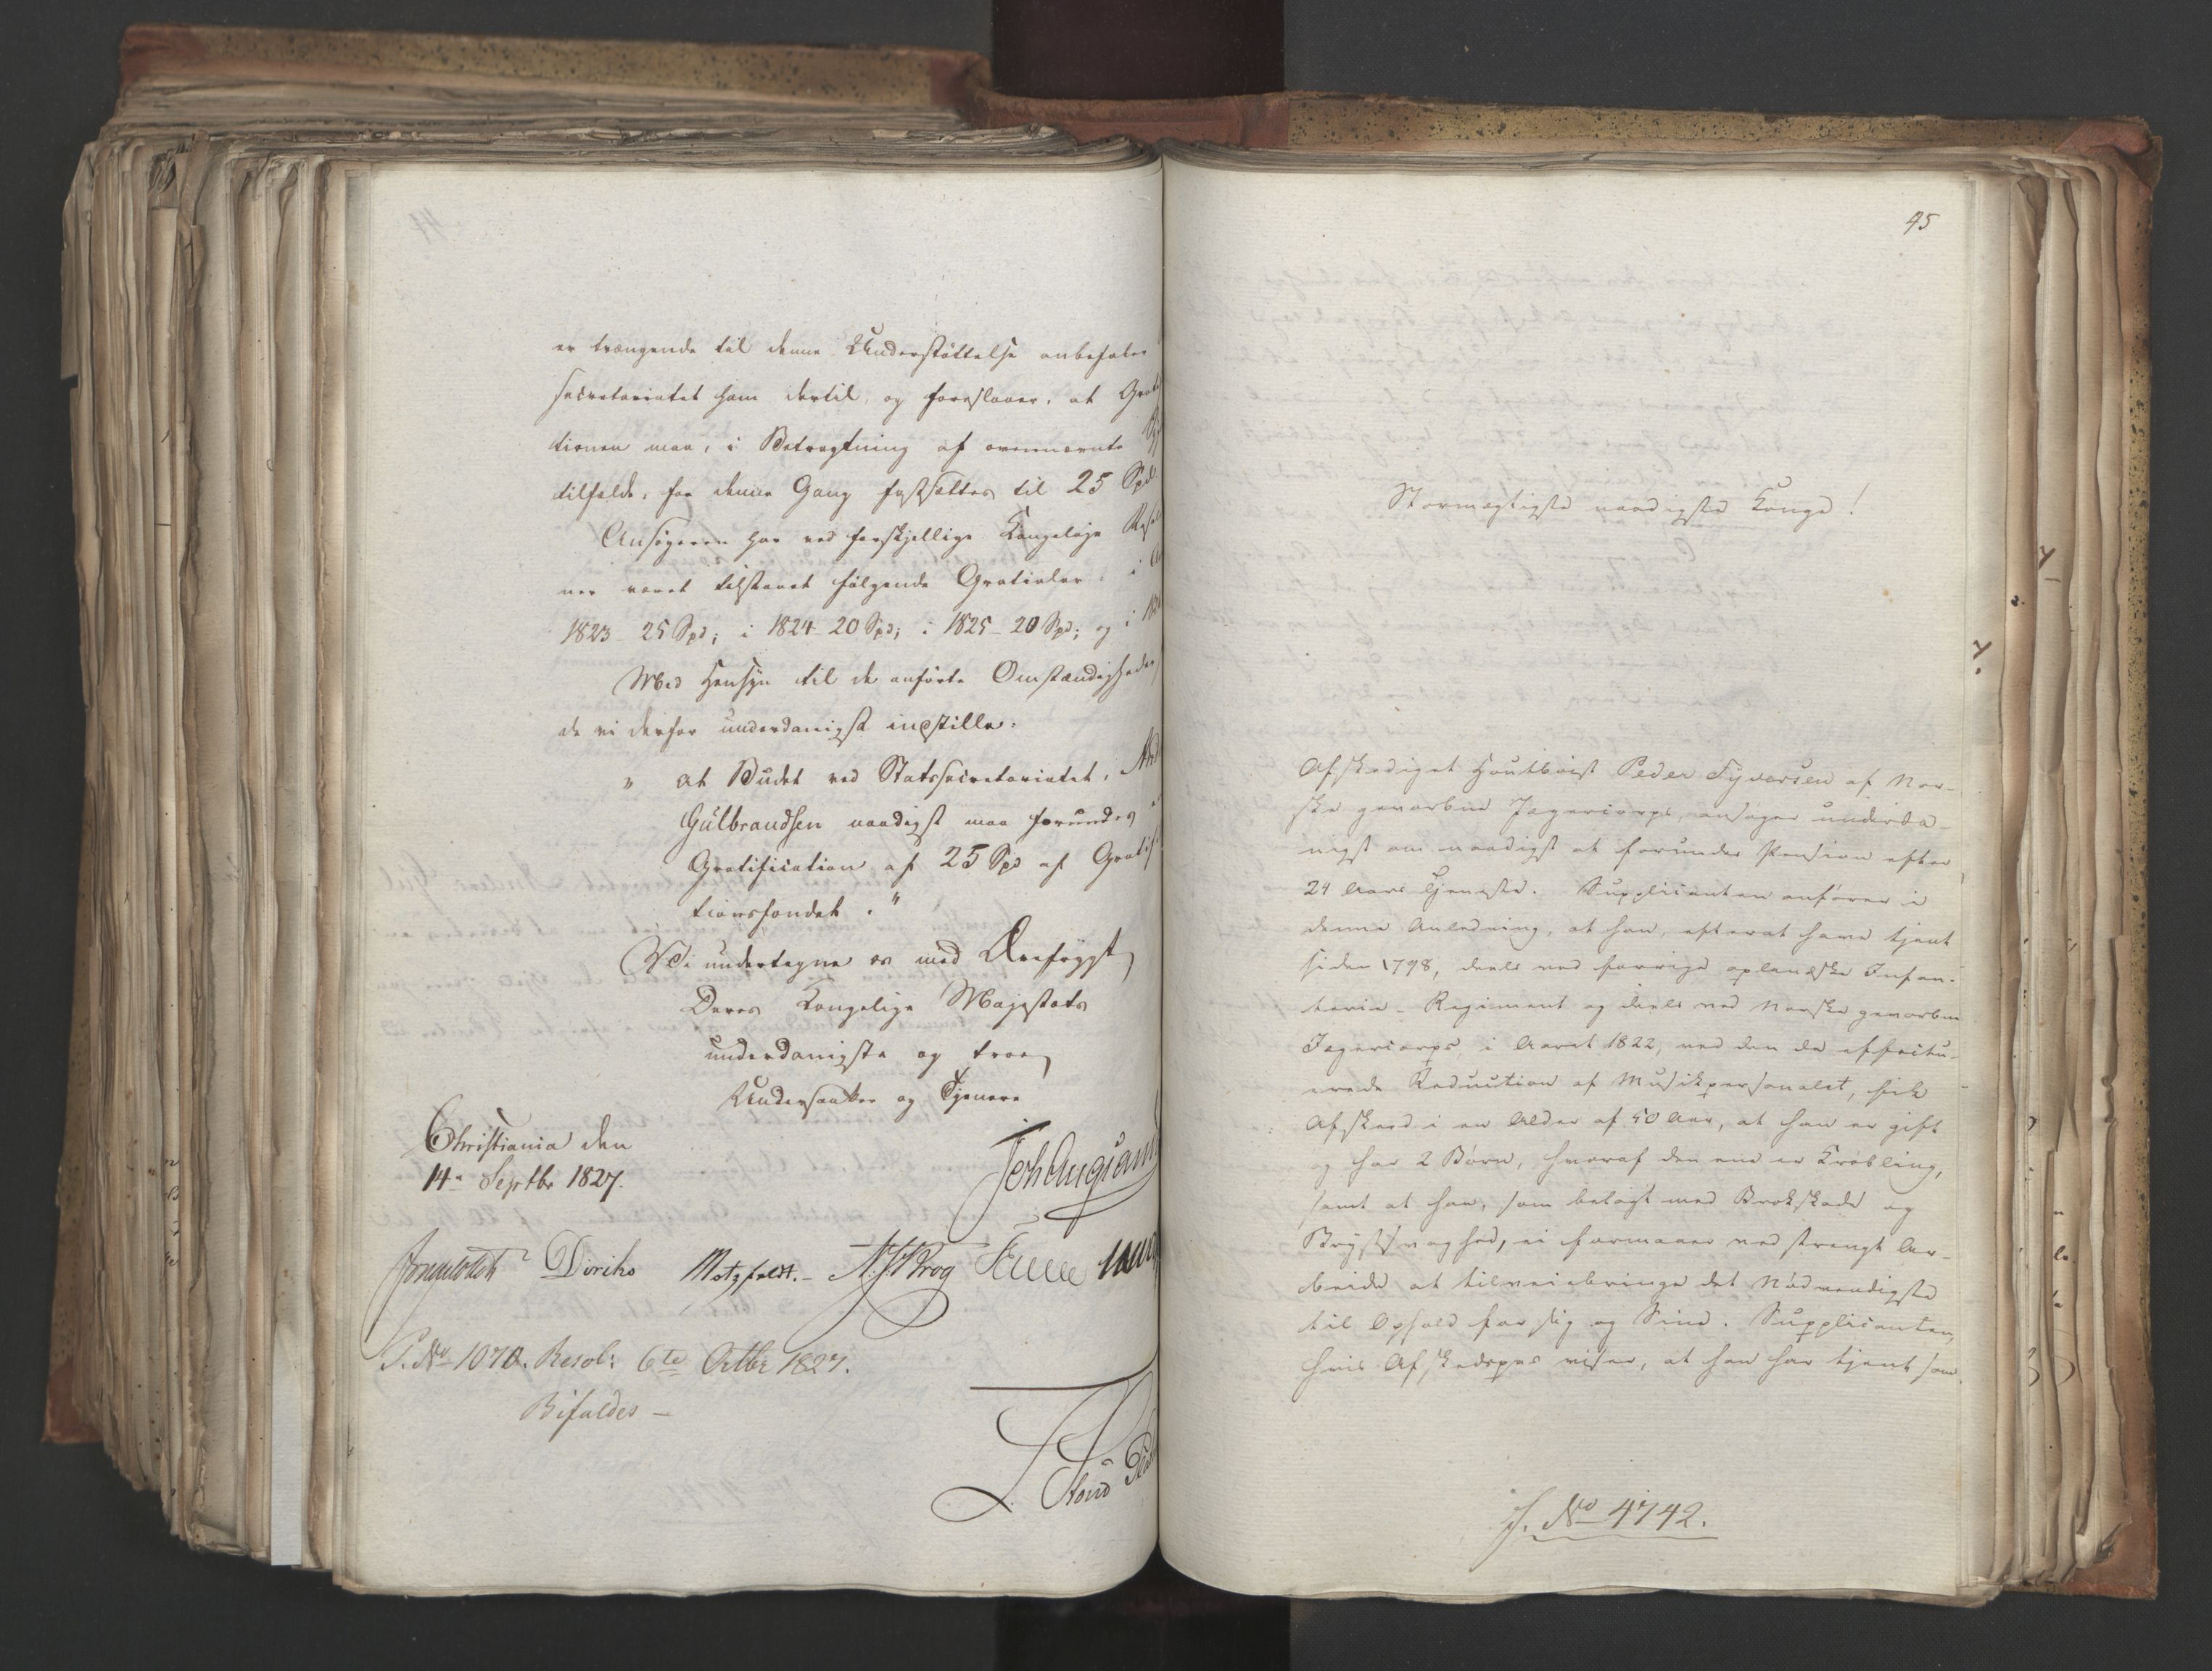 er trængende til denne Understøttelse anbefaler
Secretariatet ham dertil, og foreslaaer, at
tionen maa, i Betragtning af ovennævnte
tilfælde, for denne Gang fastsættes til 25 Spd.
Ansøgeren har ved forskjellige Kongelige
ner været tilstaaet følgende Gratialer: i
1823 25 Spd; i 1824 20 Spd; i 1825 20 Spd; og i
Med Hensyn til de anførte Omstændigheder
de vi derfor underdanigst indstille:
" at Budet ved Statssecretariatet,
Gulbrandsen naadigst maa forundes
Gratification af 25 Spd af
tionsfondet."
Vi undertegne os med Ærefrygt
Deres Kongelige Majestæts
underdanigste og troe
Undersaatter og Tjenere
Christiania den
14de Septbr 1827.
Diriks Motzfeldt. Krog
S. No 1070. Resol: 6te Octbr 1827.
Bifaldes —
45
Stormægtigste naadigste Konge!
Afskediget Houtboist Peder Syversen af Nor-
ske gevorbne Jægercorps, ansøger underda-
nigst om naadigst at forundes Pension efter
24 Aars Tjeneste. Supplicanten anfører i
denne Anledning, at han, efterat have tjent
siden 1798, deels ved forrige oplandske Infan-
terie-Regiment og deels ved Norske gevorbne
Jægercorps, i Aaret 1822, ved den da effectu-
erede Reduction af Musikpersonalet, fik
Afskeed i en Alder af 50 Aar, at han er gift
og har 2 Børn, hvoraf den ene er Krøbling,
samt at han, som belagt med Brokskade og
Brystsvaghed, ei formaaer ved strengt Ar-
beide at tilveiebringe det Nødvendigste
til Ophold for sig og Sine. Supplicanten,
hvis Afskedspas viser, at han har tjent som
J. No 4742.